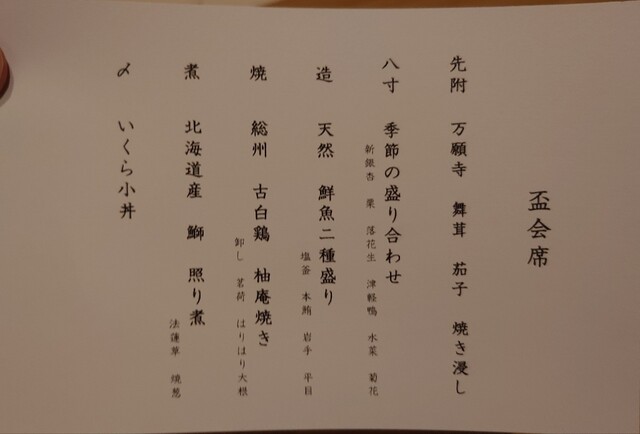 盃会席
先附 万願寺 舞茸 茄子 焼き浸し
八寸 季節の盛り合わせ
新銀杏 栗 落花生 津軽鴨 水菜 菊花
造 天然 鮮魚二種盛り
塩釜 本鮪 岩手 平目
焼 総州 古白鶏 柚庵焼き
卸し 茗荷 はりはり大根
煮 北海道産 鰤 照り煮
法蓮草 焼葱
〆 いくら小丼